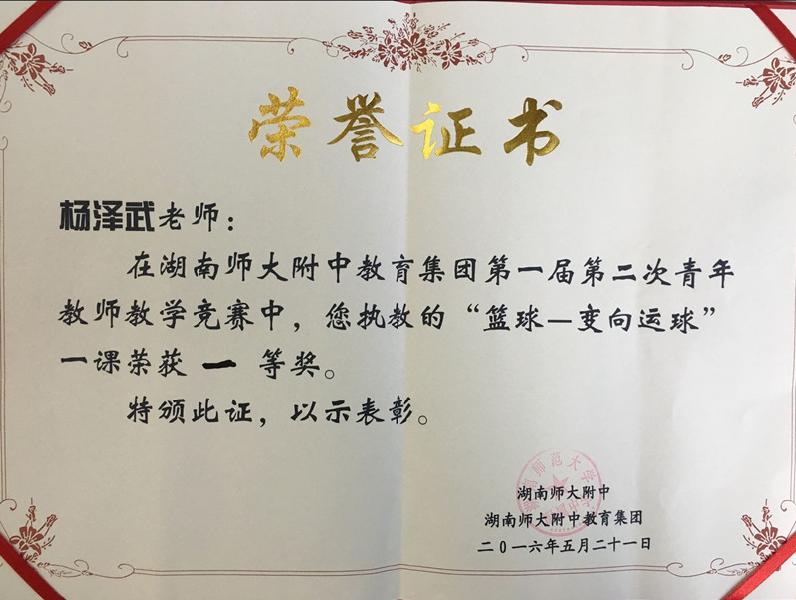 荣誉证书
杨泽武老师：
在湖南师大附中教育集团第一届第二次青年
教师教学竞赛中，您执教的“篮球—变向运球”
一课荣获 一 等奖。
特颁此证，以示表彰。
湖南师大附中
湖南师大附中教育集团
二0一六年五月二十一日